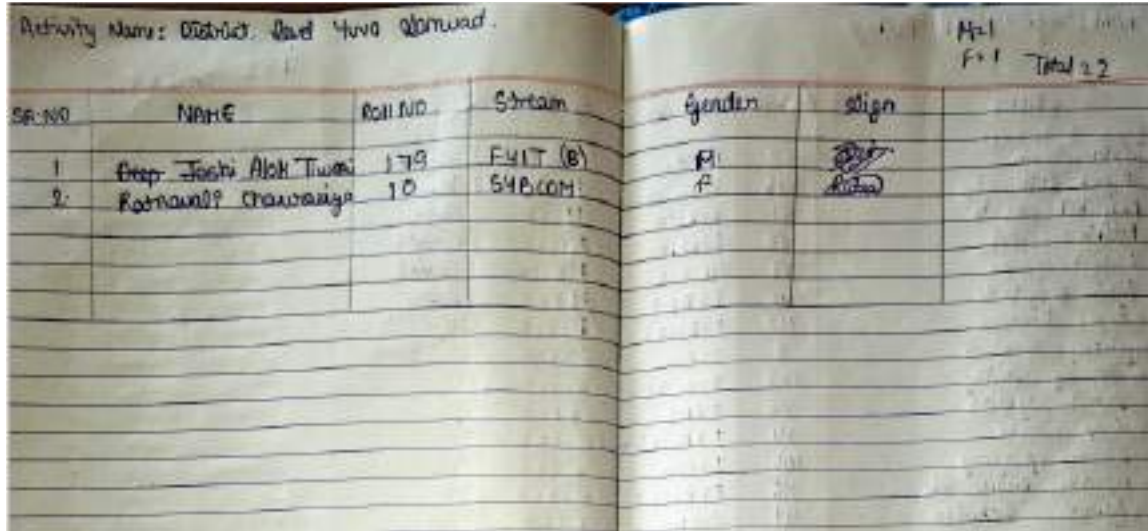 Activity Name: District level Yuva Samwad.
M=1
F=1 Total=2
SR.NO NAME ROLL NO Stream Gender Sign
1 Deep Joshi Alok Tiwari 179 FYIT (B) M
2. Ratnavali Chawariya 10 SYBCOM F